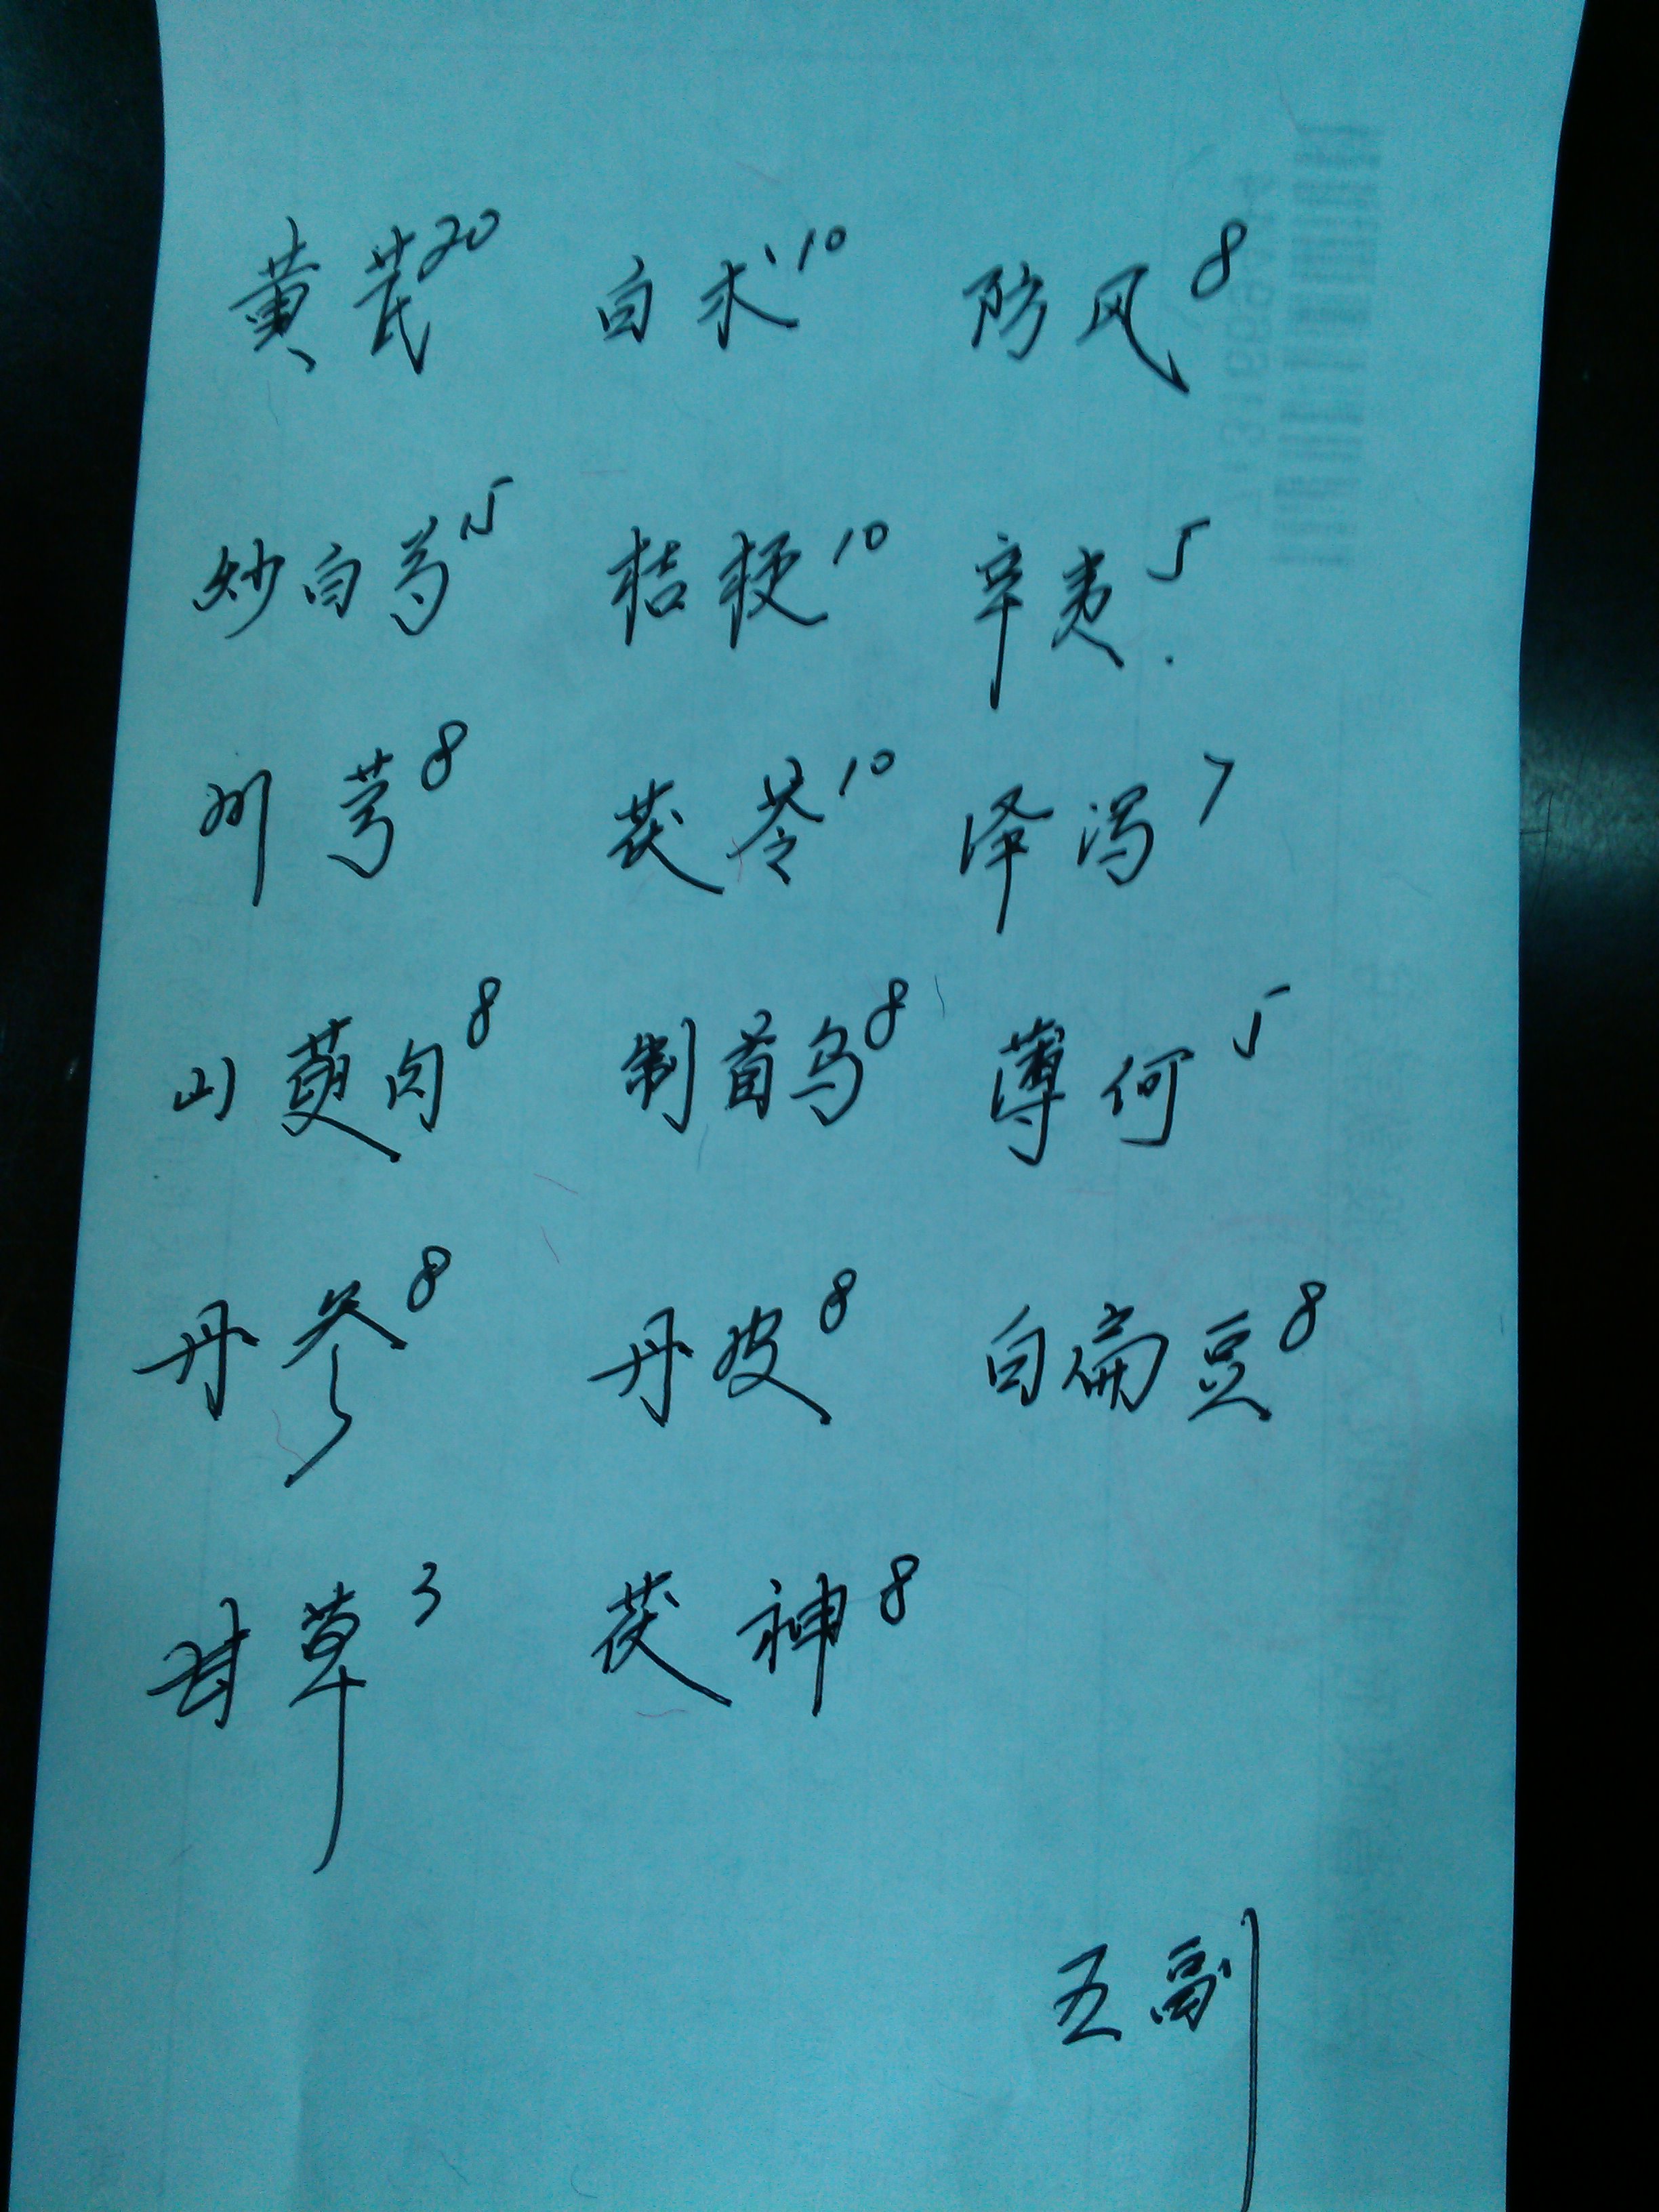 黄芪20 白术10 防风8
炒白芍15 桔梗10 辛夷5
川芎8 茯苓10 泽泻7
山萸肉8 制首乌8 薄何5
丹参8 丹皮8 白扁豆8
甘草3 茯神8
五副